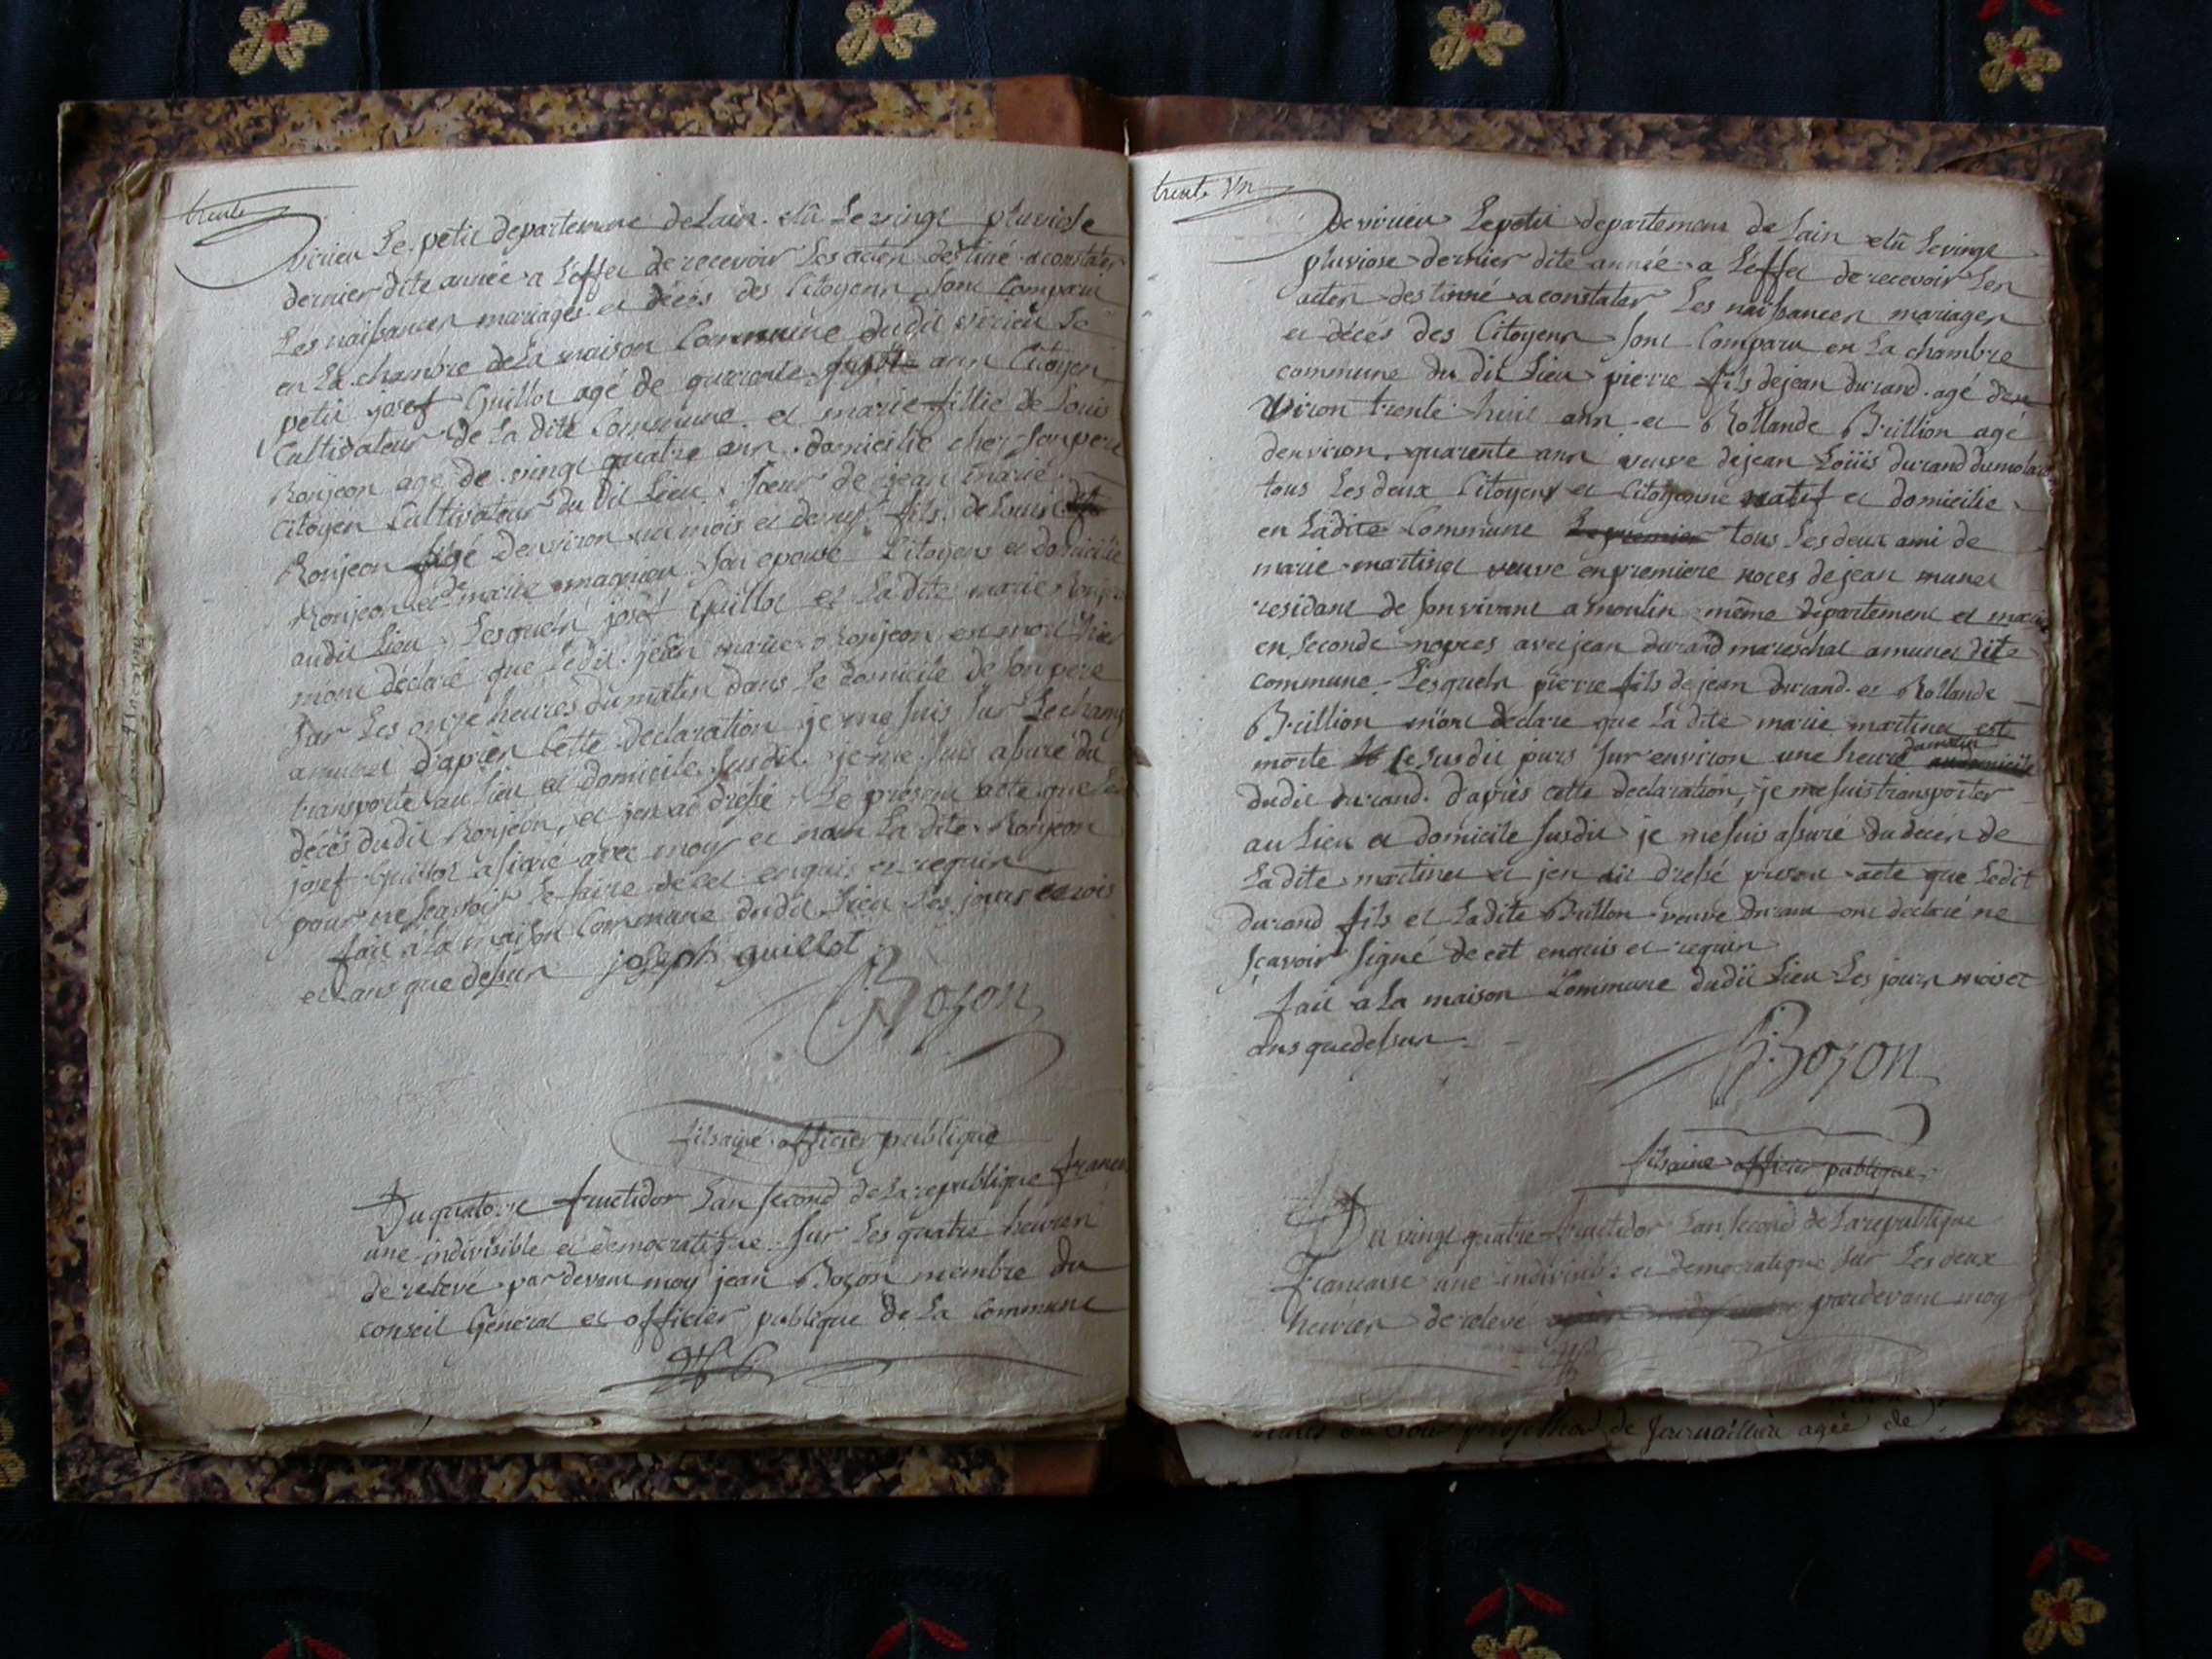 trente
virieu Le petit departement de Lain elû Le vingt pluviose
dernier dite année a Leffet de recevoir Les acten destiné a constater
Les naissancen mariages et décès des Citoyenn sont Comparu
en La chambre de La maison Commune dudit virieu Le
petit josef Guillot agé de quarente ann Citoyen
Cultivateur de La dite Commune et marie fillie de Louis
Ronjeon agé de vingt quatre ann domicilié cher son pere
Citoyen Cultivateur du dit Lieu Soeur de jean marie
Ronjeon agé denviron un mois et demy fils de Louis
Ronjeon et de marie magnien son epouse Citoyens et domicilié
audit Lieu Lesquels josef Guillot et La dite marie Ronjeon
mont déclaré que Ledit jean marie Ronjeon est mort hier
sur Les onze heures du matin dans Le domicile de son pere
a munet d'aprèn Cette declaration je me suis sur Le champ
transporté au lieu et domicile susdit je me suis assuré du
décès dudit Ronjeon, et jen ai dressé Le présent acte que Led
josef Guillot a signé avec moy et non La dite Ronjeon
pour ne scavoir Le faire de cet enquis et requin
fait a la maison Commune dudit Lieu Les jours et mois
et ans que dessun joseph guillot
J. Bozon
fils ainé officier publique
Du quatorze fructidor Lan second de La republique franc
une indivisible et democratique sur Les quatre heuren
de relevé par devant moy jean Bozon membre du
conseil Général et officier publique de La Commune
trente Un
de virieu Le petit departement de Lain elû Le vingt
pluviose dernier dite année a Leffet de recevoir Len
acten destinné a constater Les naissancen mariagen
et décés des Citoyenn sont Comparu en La chambre
commune du dit Lieu pierre fils de jean durand agé den
viron trente huit ann et Rollande Brillion agé
denviron quarente ann veuve de jean Loüis durand dumolard
tous Les deux Citoyens et Citoyenne natif et domicilie
en Ladite Commune Le premier tous Les deux ami de
marie martinet veuve en premiere noces de jean munet
residant de son vivant a moulin même departement et marié
en seconde nopces avec jean durand mareschal a munet dite
commune Lesqueln pierre fils de jean durand et Rollande
Brillion m'ont declare que La dite marie martinet est
morte Le susdit jours sur environ une heure du matin au domicile
dudit durand d'après cette declaration, je me suis transporter
au Lieu et domicile susdit je me suis assuré du decèn de
La dite martinet et jen ait dressé present acte que Ledit
durand fils et Ladite Brillon veuve durand ont declaré ne
scavoir signé de cet enquis et requin
fait a La maison Commune dudit Lieu Les jours mois et
ans que dessun
J. Bozon
fils ainé officier publique
Du vingt quatre fructidor Lan second de La republique
francaise une indivisible et democratique sur Les deux
heuren de relevé pardevant moy
de agée de